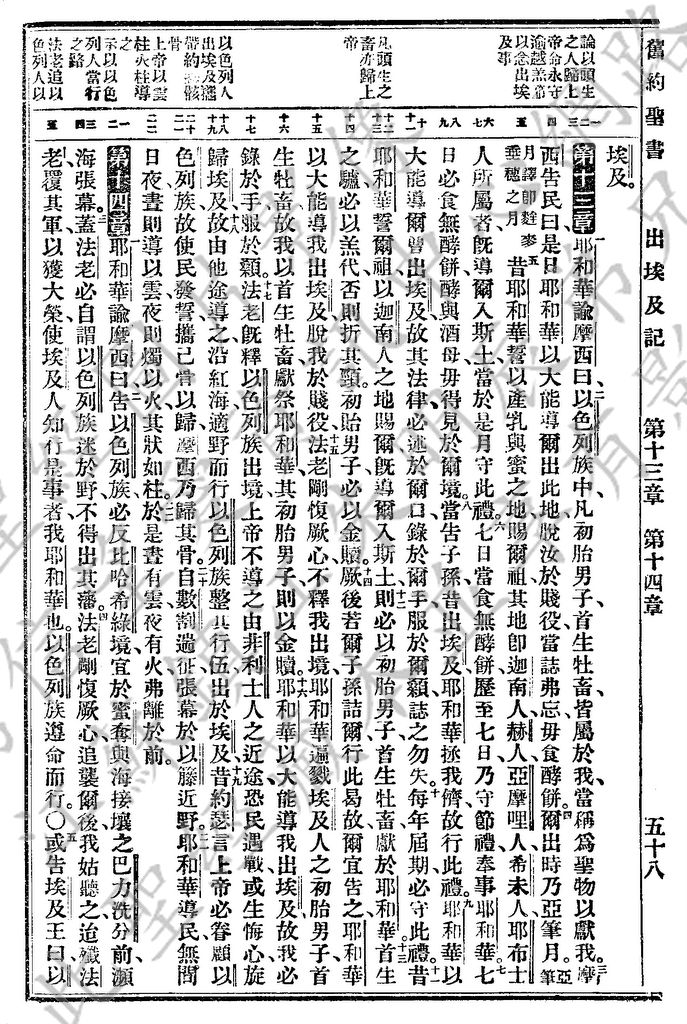 舊約聖書 出埃及記 第十三章 第十四章 五十八
論以頭生
之人歸上
帝命永守
逾越羔節
以念出埃
及事
凡頭生之
畜亦歸上
帝
以色列人
出埃及攜
帶約瑟骸
骨
上帝以雲
柱火柱導
之
示以以色
列人當行
之路
法老追以
色列人以
埃及。
第十三章 耶和華諭摩西曰、以色列族中、凡初胎男子、首生牡畜、皆屬於我、當稱爲聖物以獻我。摩
西告民曰、是日耶和華以大能導爾出此地、脫汝於賤役、當誌弗忘、毋食酵餅。爾出時乃亞筆月。亞筆
月譯卽麰麥垂穗之月 昔耶和華誓以產乳與蜜之地賜爾祖、其地卽迦南人、赫人、亞摩哩人、希未人、耶布士
人所屬者、旣導爾入斯土、當於是月守此禮。七日當食無酵餅、歷至七日、乃守節禮、奉事耶和華。七
日必食無酵餅、酵與酒母毋得見於爾境。當告子孫、昔出埃及、耶和華拯我儕、故行此禮。耶和華以
大能導爾曾出埃及、故其法律必述於爾口、錄於爾手、服於爾顙、誌之勿失。每年屆期、必守此禮。昔
耶和華誓爾祖、以迦南人之地賜爾、旣導爾入斯土、則必以初胎男子、首生牡畜、獻於耶和華。首生
之驢、必以羔代、否則折其頸、初胎男子必以金贖。厥後若爾子孫詰爾、行此曷故、爾宜告之、耶和華
以大能導我出埃及、脫我於賤役。法老剛愎厥心、不釋我出境、耶和華遍戮埃及人之初胎男子、首
生牡畜、故我以首生牡畜獻祭耶和華、其初胎男子、則以金贖、耶和華以大能導我出埃及、故我必
錄於手、服於顙。法老旣釋以色列族出境、上帝不導之由非利士人之近途、恐民遇戰、或生悔心、旋
歸埃及、故由他途導之、沿紅海、適野而行、以色列族整其行伍、出於埃及。昔約瑟言上帝必眷顧以
色列族、故使民發誓、攜己骨以歸、摩西乃歸其骨。自數割遄征、張幕於以籐、近野。耶和華導民、無間
日夜、晝則導以雲、夜則燭以火、其狀如柱。於是晝有雲、夜有火、弗離於前。
第十四章 耶和華諭摩西曰、告以色列族、必反比哈希綠境、宜於蜜奪與海接壤之巴力洗分前、瀕
海張幕。蓋法老必自謂以色列族迷於野、不得出其藩。法老剛愎厥心、追襲爾後、我姑聽之、迨殲法
老、覆其軍、以獲大榮、使埃及人知行是事者、我耶和華也。以色列族遵命而行。〇或告埃及王曰、以